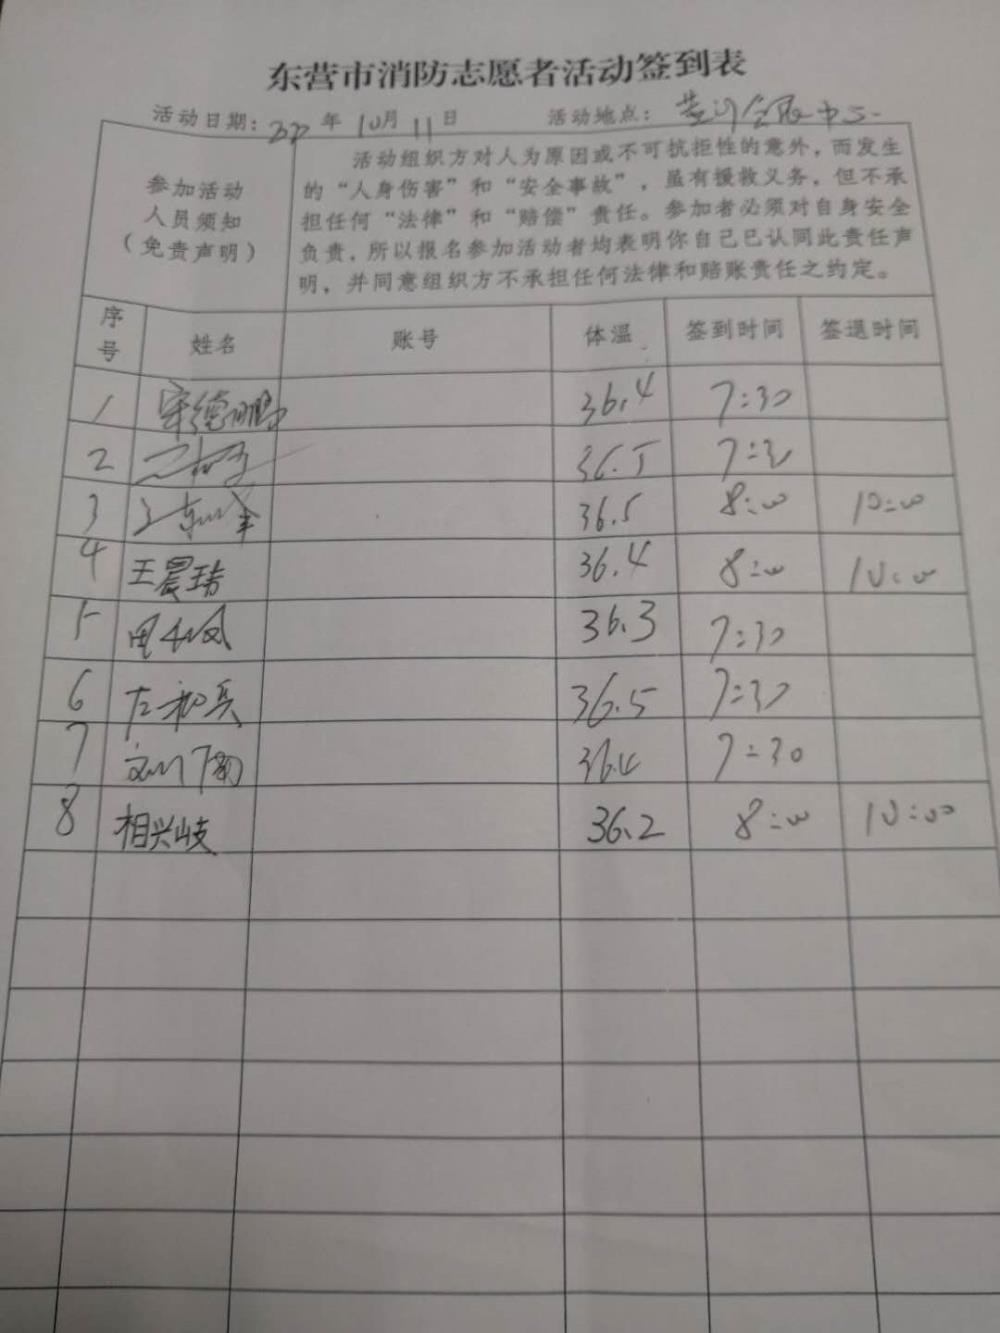 东营市消防志愿者活动签到表
活动日期: 年 10月 11日 活动地点: 中心
参加活动
人员须知
(免责声明)
活动组织方对人为原因或不可抗拒性的意外，而发生
的“人身伤害”和“安全事故”，虽有援救义务，但不承
担任何“法律”和“赔偿”责任。参加者必须对自身安全
负责，所以报名参加活动者均表明你自己已认同此责任声
明，并同意组织方不承担任何法律和赔账责任之约定。
序号 姓名 账号 体温 签到时间 签退时间
1 36.4 7:30
2 36.5 7:30
3 36.5 8:00 10:00
4 王晨 36.4 8:00 10:00
5 36.3 7:30
6 36.5 7:30
7 36.4 7:30
8 相兴岐 36.2 8:00 10:00